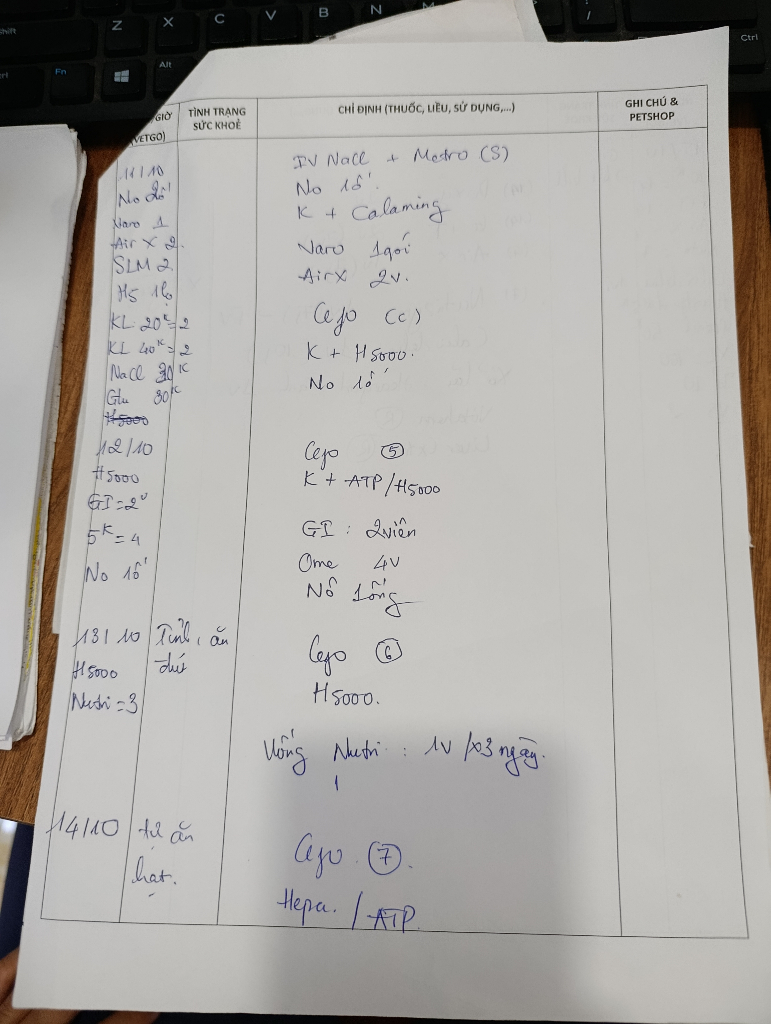 GIỜ
(VETGO)
TÌNH TRẠNG
SỨC KHOẺ
CHỈ ĐỊNH (THUỐC, LIỀU, SỬ DỤNG,...)
GHI CHÚ &
PETSHOP
11/10
No 2ố
Naro 1
Air X 2
SLM 2
H5 1lọ
KL 20K = 2
KL 40K = 2
NaCl 30K
Glu 30K
H5000
IV NaCl + Metro (S)
No 1ố
K + Calaming
Naro 1gói
AirX 2v.
Cefo (C)
K + H5000.
No 1ố
12/10
H5000
GI = 2v
5K = 4
No 1ố
Cefo 5
K + ATP/H5000
GI : 2viên
Ome 4v
Nô 1ống
13/10
H5000
Nutri = 3
Tỉnh, ăn
Cefo 6
H5000.
Uống Nutri : 1v /x3 ngày.
14/10
tự ăn
hạt.
Cefo 7.
Hepa. / ATP